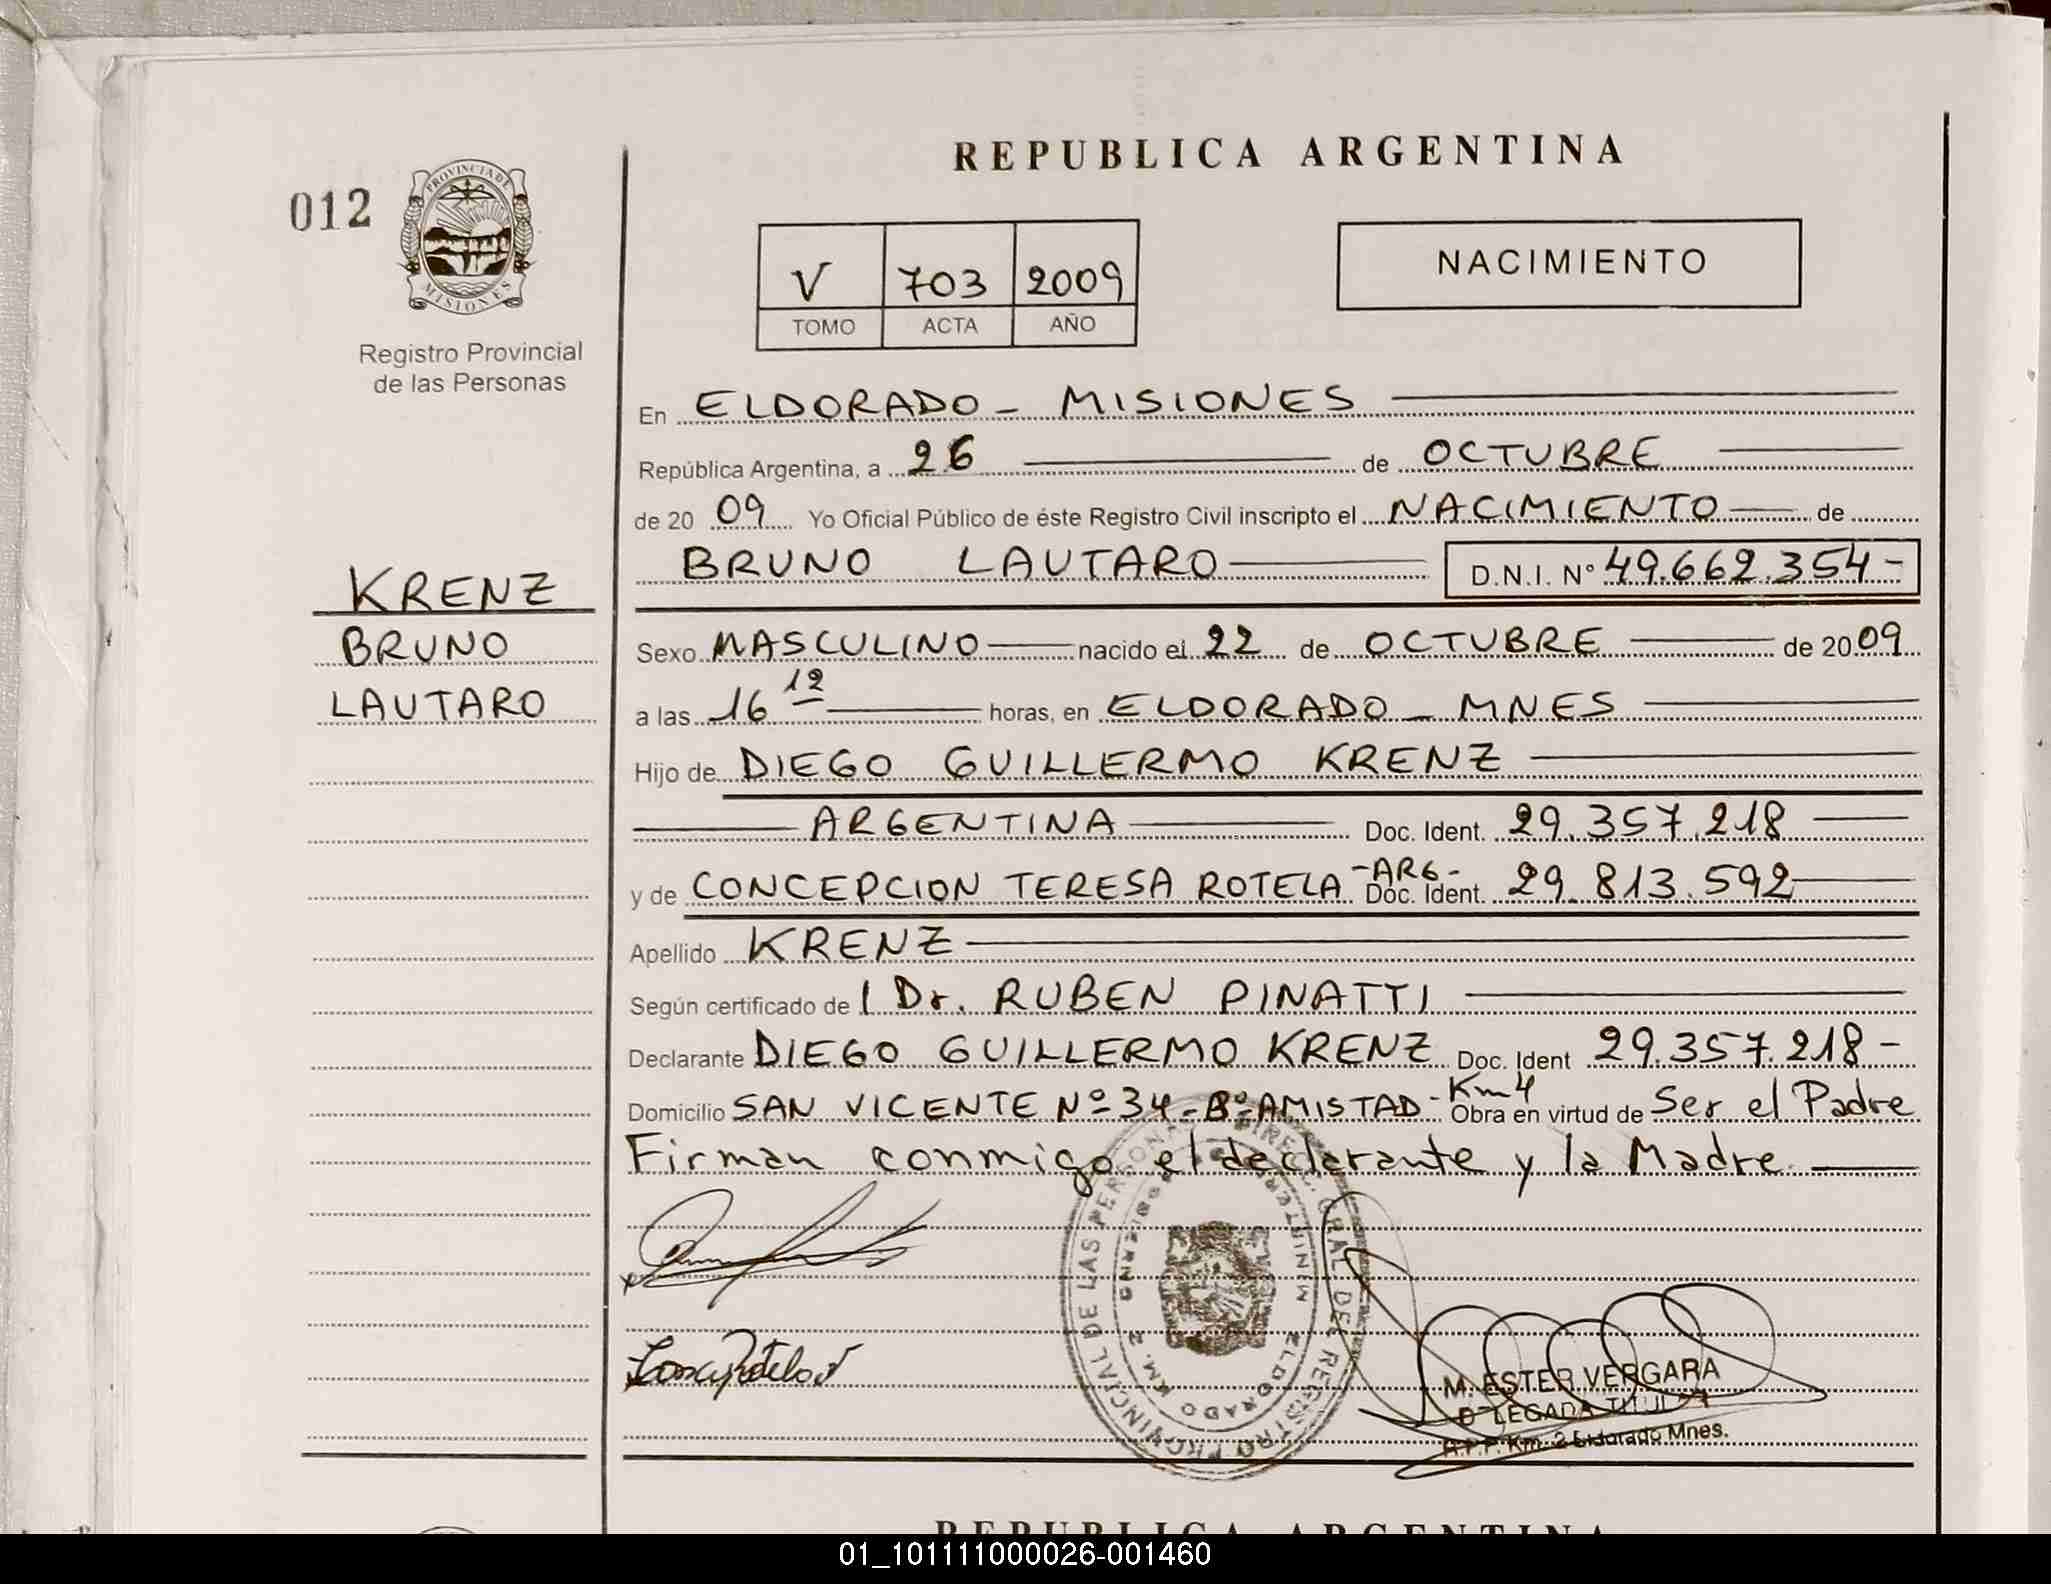 REPUBLICA ARGENTINA
012
PROVINCIA DE
MISIONES
Registro Provincial
de las Personas
V 703 2009
TOMO ACTA AÑO
NACIMIENTO
En ELDORADO - MISIONES
República Argentina, a 26 de OCTUBRE
de 20 09 Yo Oficial Público de éste Registro Civil inscripto el NACIMIENTO de
BRUNO LAUTARO D.N.I. Nº 49.662.354-
KRENZ
BRUNO
LAUTARO
Sexo MASCULINO nacido el 22 de OCTUBRE de 2009
a las 16 12 horas, en ELDORADO - MNES
Hijo de DIEGO GUILLERMO KRENZ
ARGENTINA Doc. Ident. 29.357.218
y de CONCEPCION TERESA ROTELA -ARG- Doc. Ident. 29.813.592
Apellido KRENZ
Según certificado de l Dr. RUBEN PINATTI
Declarante DIEGO GUILLERMO KRENZ Doc. Ident 29.357.218-
Domicilio SAN VICENTE Nº 34 - Bº AMISTAD - Km 4 Obra en virtud de Ser el Padre
Firman conmigo el declarante y la Madre
DIREC. GRAL. DEL REGISTRO PROVINCIAL DE LAS PERSONAS
ELDORADO KM. 2
M. ESTER VERGARA
DELEGADA TITULAR
R.P.P. Km. 2 Eldorado Mnes.
REPUBLICA ARGENTINA
01_101111000026-001460